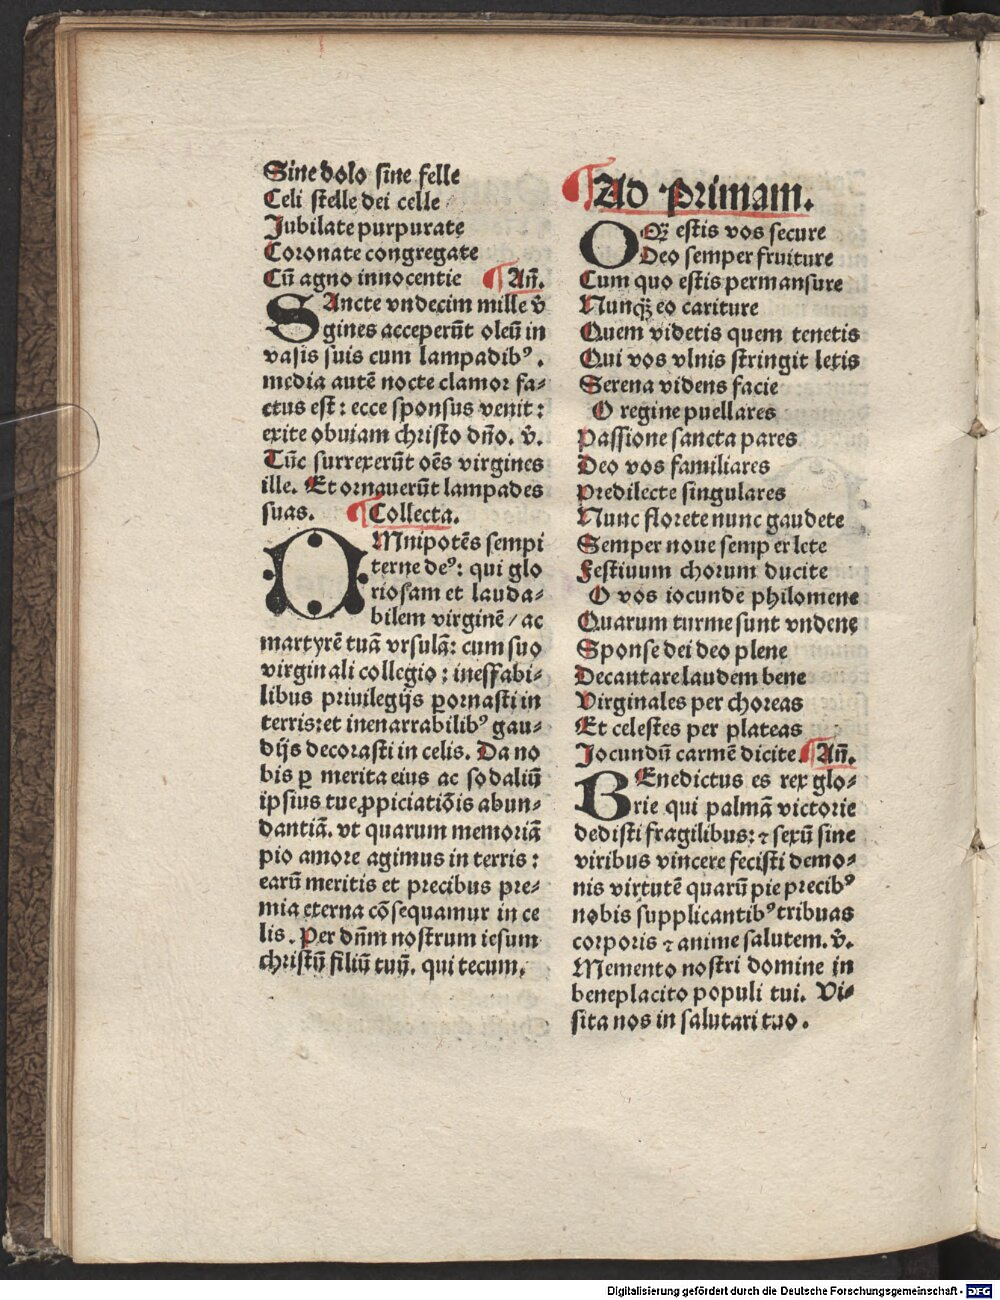 Sine dolo sine felle
Celi stelle dei celle
Jubilate purpurate
Coronate congregate
Cū agno innocentie ¶ Añ.
SAncte vndecim mille v̄
gines acceperūt oleū in
vasis suis cum lampadibꝰ.
media autē nocte clamor fa⸗
ctus est: ecce sponsus venit:
exite obuiam christo dño. v̄.
Tūc surrexerūt oēs virgines
ille. Et ornauerūt lampades
suas. ¶ Collecta.
OMnipotēs sempi
terne deꝰ: qui glo
riosam et lauda⸗
bilem virginē / ac
martyrē tuā vrsulā: cum suo
virginali collegio: ineffabi⸗
libus priuilegijs ꝑornasti in
terris: et inenarrabilibꝰ gau⸗
dijs decorasti in celis. Da no
bis ꝑ merita eius ac sodaliū
ipsius tue ꝓpiciatiōis abun⸗
dantiā. vt quarum memoriā
pio amore agimus in terris:
earū meritis et precibus pre⸗
mia eterna cōsequamur in ce
lis. Per dñm nostrum iesum
christū filiū tuū. qui tecum.
¶ Ad Primam.
OQꝫ estis vos secure
Deo semper fruiture
Cum quo estis permansure
Nunqꝫ eo cariture
Quem videtis quem tenetis
Qui vos vlnis stringit letis
Serena videns facie
O regine puellares
Passione sancta pares
Deo vos familiares
Predilecte singulares
Nunc florete nunc gaudete
Semper noue semp er lete
Festiuum chorum ducite
O vos iocunde philomene
Quarum turme sunt vndene
Sponse dei deo plene
Decantare laudem bene
Virginales per choreas
Et celestes per plateas
Jocundū carmē dicite. ¶ Añ.
BEnedictus es rex glo⸗
rie qui palmā victorie
dedisti fragilibus: ⁊ sexū sine
viribus vincere fecisti demo⸗
nis virtutē quarū pie precibꝰ
nobis supplicantibꝰ tribuas
corporis ⁊ anime salutem. v̄.
Memento nostri domine in
beneplacito populi tui. Vi⸗
sita nos in salutari tuo.
Digitalisierung gefördert durch die Deutsche Forschungsgemeinschaft - DFG